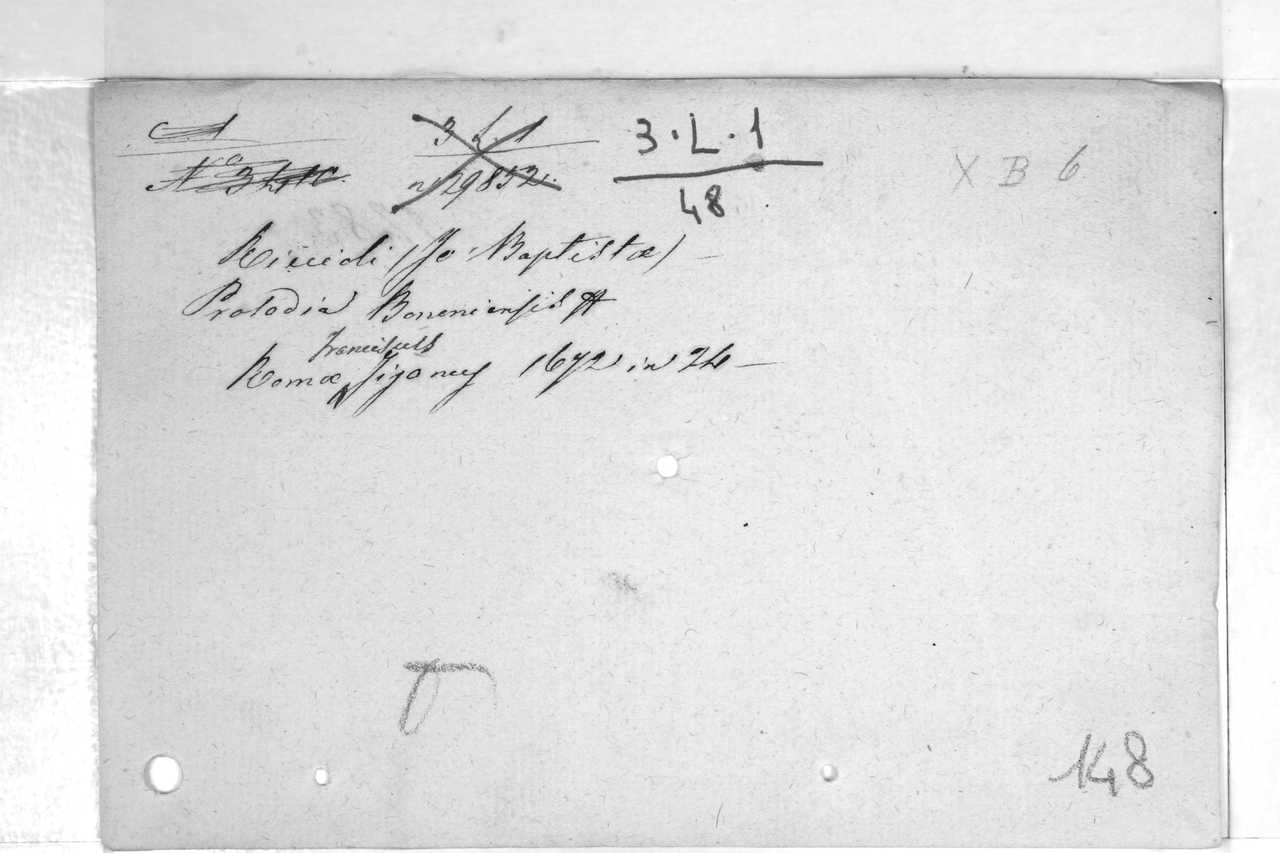 3 L. 1
n 29852.
3 · L · 1
48
X B 6
Riccioli (Jo: Baptistæ) —
Prosodia Bononiensis
Franciscus
Romæ 1672 in 24 —
148